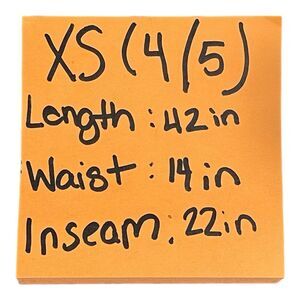 XS (4/5)
Length: 42in
Waist: 14in
Inseam. 22in